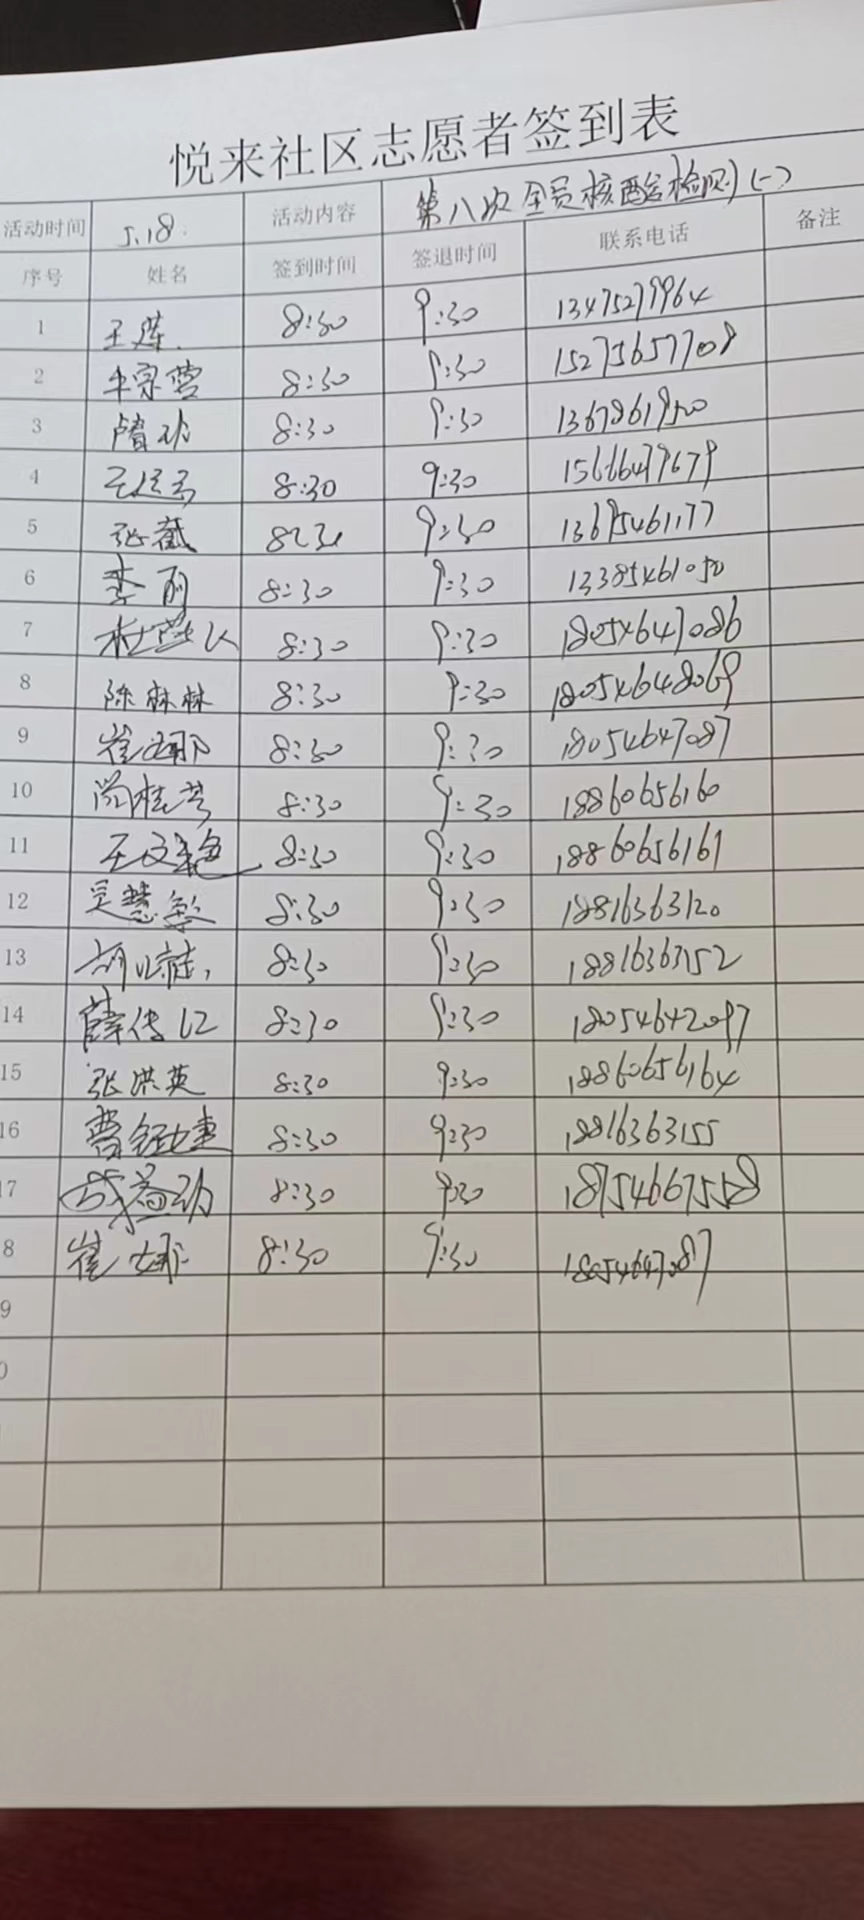 悦来社区志愿者签到表
活动时间 5.18. 活动内容 第八次全员核酸检测(一)
序号 姓名 签到时间 签退时间 联系电话 备注
1 王莲. 8:30 9:30 13475279964
2 8:30 9:30 15275657708
3 8:30 9:30
4 8:30 9:30 15666479679
5 张薇 8:30 9:30 13695461177
6 李丽 8:30 9:30 13385461050
7 8:30 9:30 18054647086
8 陈林林 8:30 9:30 18054648069
9 崔娜 8:30 9:30 18054647087
10 尚桂芳 8:30 9:30 18860656160
11 王文艳 8:30 9:30 18860656161
12 吴慧敏 8:30 9:30 18816363120
13 8:30 9:30 18816363152
14 薛传江 8:30 9:30 18054642097
15 张洪英 8:30 9:30 18860656164
16 8:30 9:30 18816363155
17 8:30 9:30 18754667558
18 崔娜 8:30 9:30 18054647087